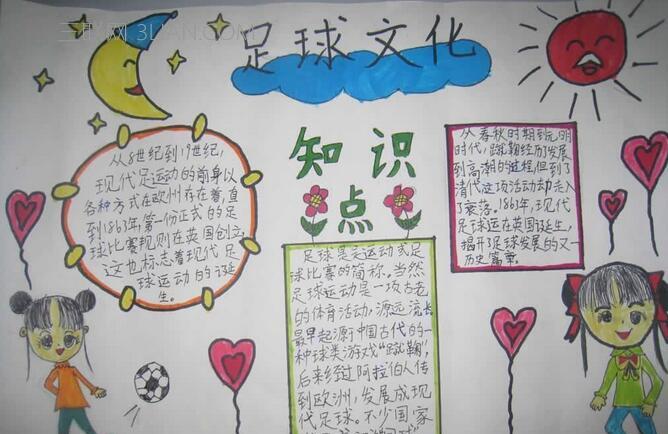 三联网 3LIAN.COM
足球文化
知识点
从8世纪到19世纪,
现代足运动的前身以
各种方式在欧州存在着,直
到1863年,第一份正式的足
球比赛规则在英国创立,
这也标志着现代足
球运动的诞
生。
足球是足运动或足
球比赛的简称。当然
足球运动是一项古老
的体育活动,源远流长
最早起源于中国古代的一
种球类游戏“蹴鞠”,
后来经过阿拉伯人传
到欧洲,发展成现
代足球。不少国家
从春秋时期到元明
时代,蹴鞠经历了发展
到高潮的进程,但到了
清代这项活动却走入
了衰落。1863年,现代
足球运在英国诞生,
揭开了足球发展的又一
历史篇章。